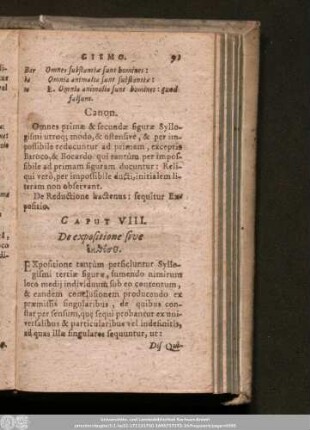 GISMO. 91
Bar Omnes substantiæ sunt homines:
ba Omnia animalia sunt substantiæ:
ra E. Omnia animalia sunt homines: quod
falsum.
Canon.
Omnes primæ & secundæ figuræ Syllo-
gismi utroq; modo, & ostensivè, & per im-
possibile reducuntur ad primam, exceptis
Baroco, & Bocardo qui tantùm per impos-
sibile ad primam figuram ducuntur: Reli-
qui verò, per impossibile ducti, initialem li-
teram non observant.
De Reductione hactenus: sequitur Ex-
positio.
CAPUT VIII.
De expositione sive
EXpositione tantùm perficiuntur Syllo-
gismi tertiæ figuræ, sumendo nimirum
loco medij individuum sub eo contentum,
& eandem conclusionem producendo ex
præmissis singularibus, de quibus con-
stat per sensum, quę sequi probantur ex uni-
versalibus & particularibus vel indefinitis,
ad quas illæ singulares sequuntur, ut:
Dis Qui-